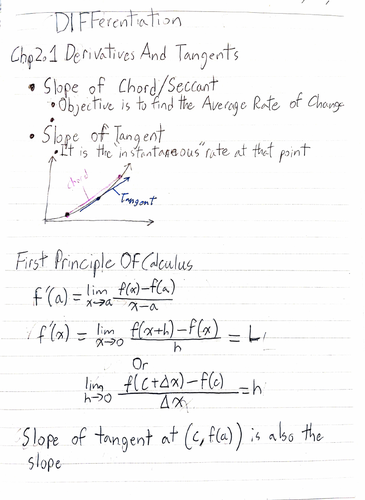 DIFferentiation
Chp2.1 Derivatives And Tangents
• Slope of Chord/Seccant
• Objective is to find the Average Rate of Change
• Slope of Tangent
• It is the "instantaneous" rate at that point
chord
Tangent
First Principle Of Calculus
f'(a) = lim x→a f(x)-f(a) / x-a
f'(x) = lim x→0 f(x+h)-f(x) / h = L
Or
lim h→0 f(c+Δx)-f(c) / Δx = h
Slope of tangent at (c, f(a)) is also the
slope